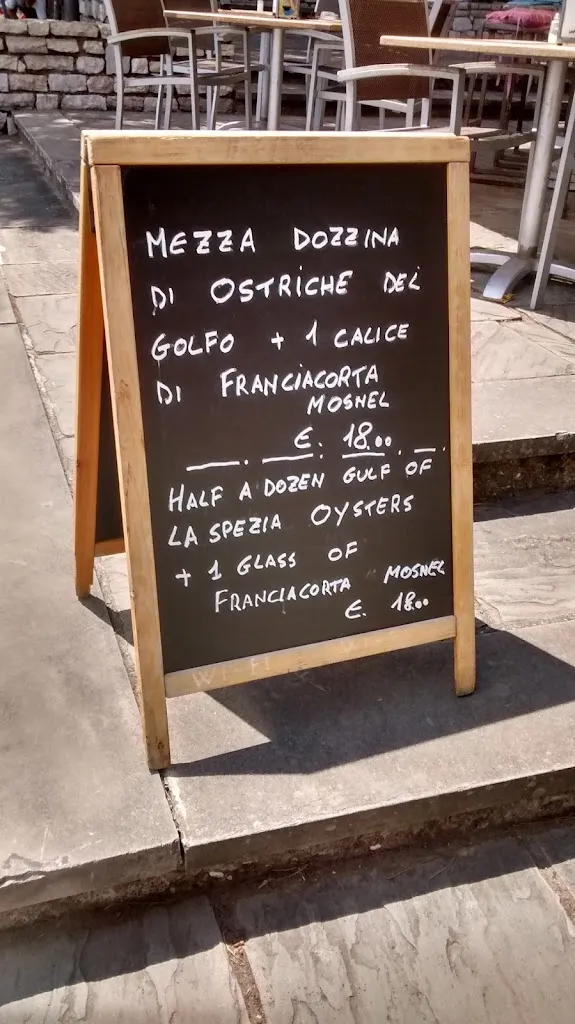 MEZZA DOZZINA
DI OSTRICHE DEL
GOLFO + 1 CALICE
DI FRANCIACORTA
MOSNEL
€. 18.00
HALF A DOZEN GULF OF
LA SPEZIA OYSTERS
+ 1 GLASS OF
FRANCIACORTA MOSNEL
€. 18.00